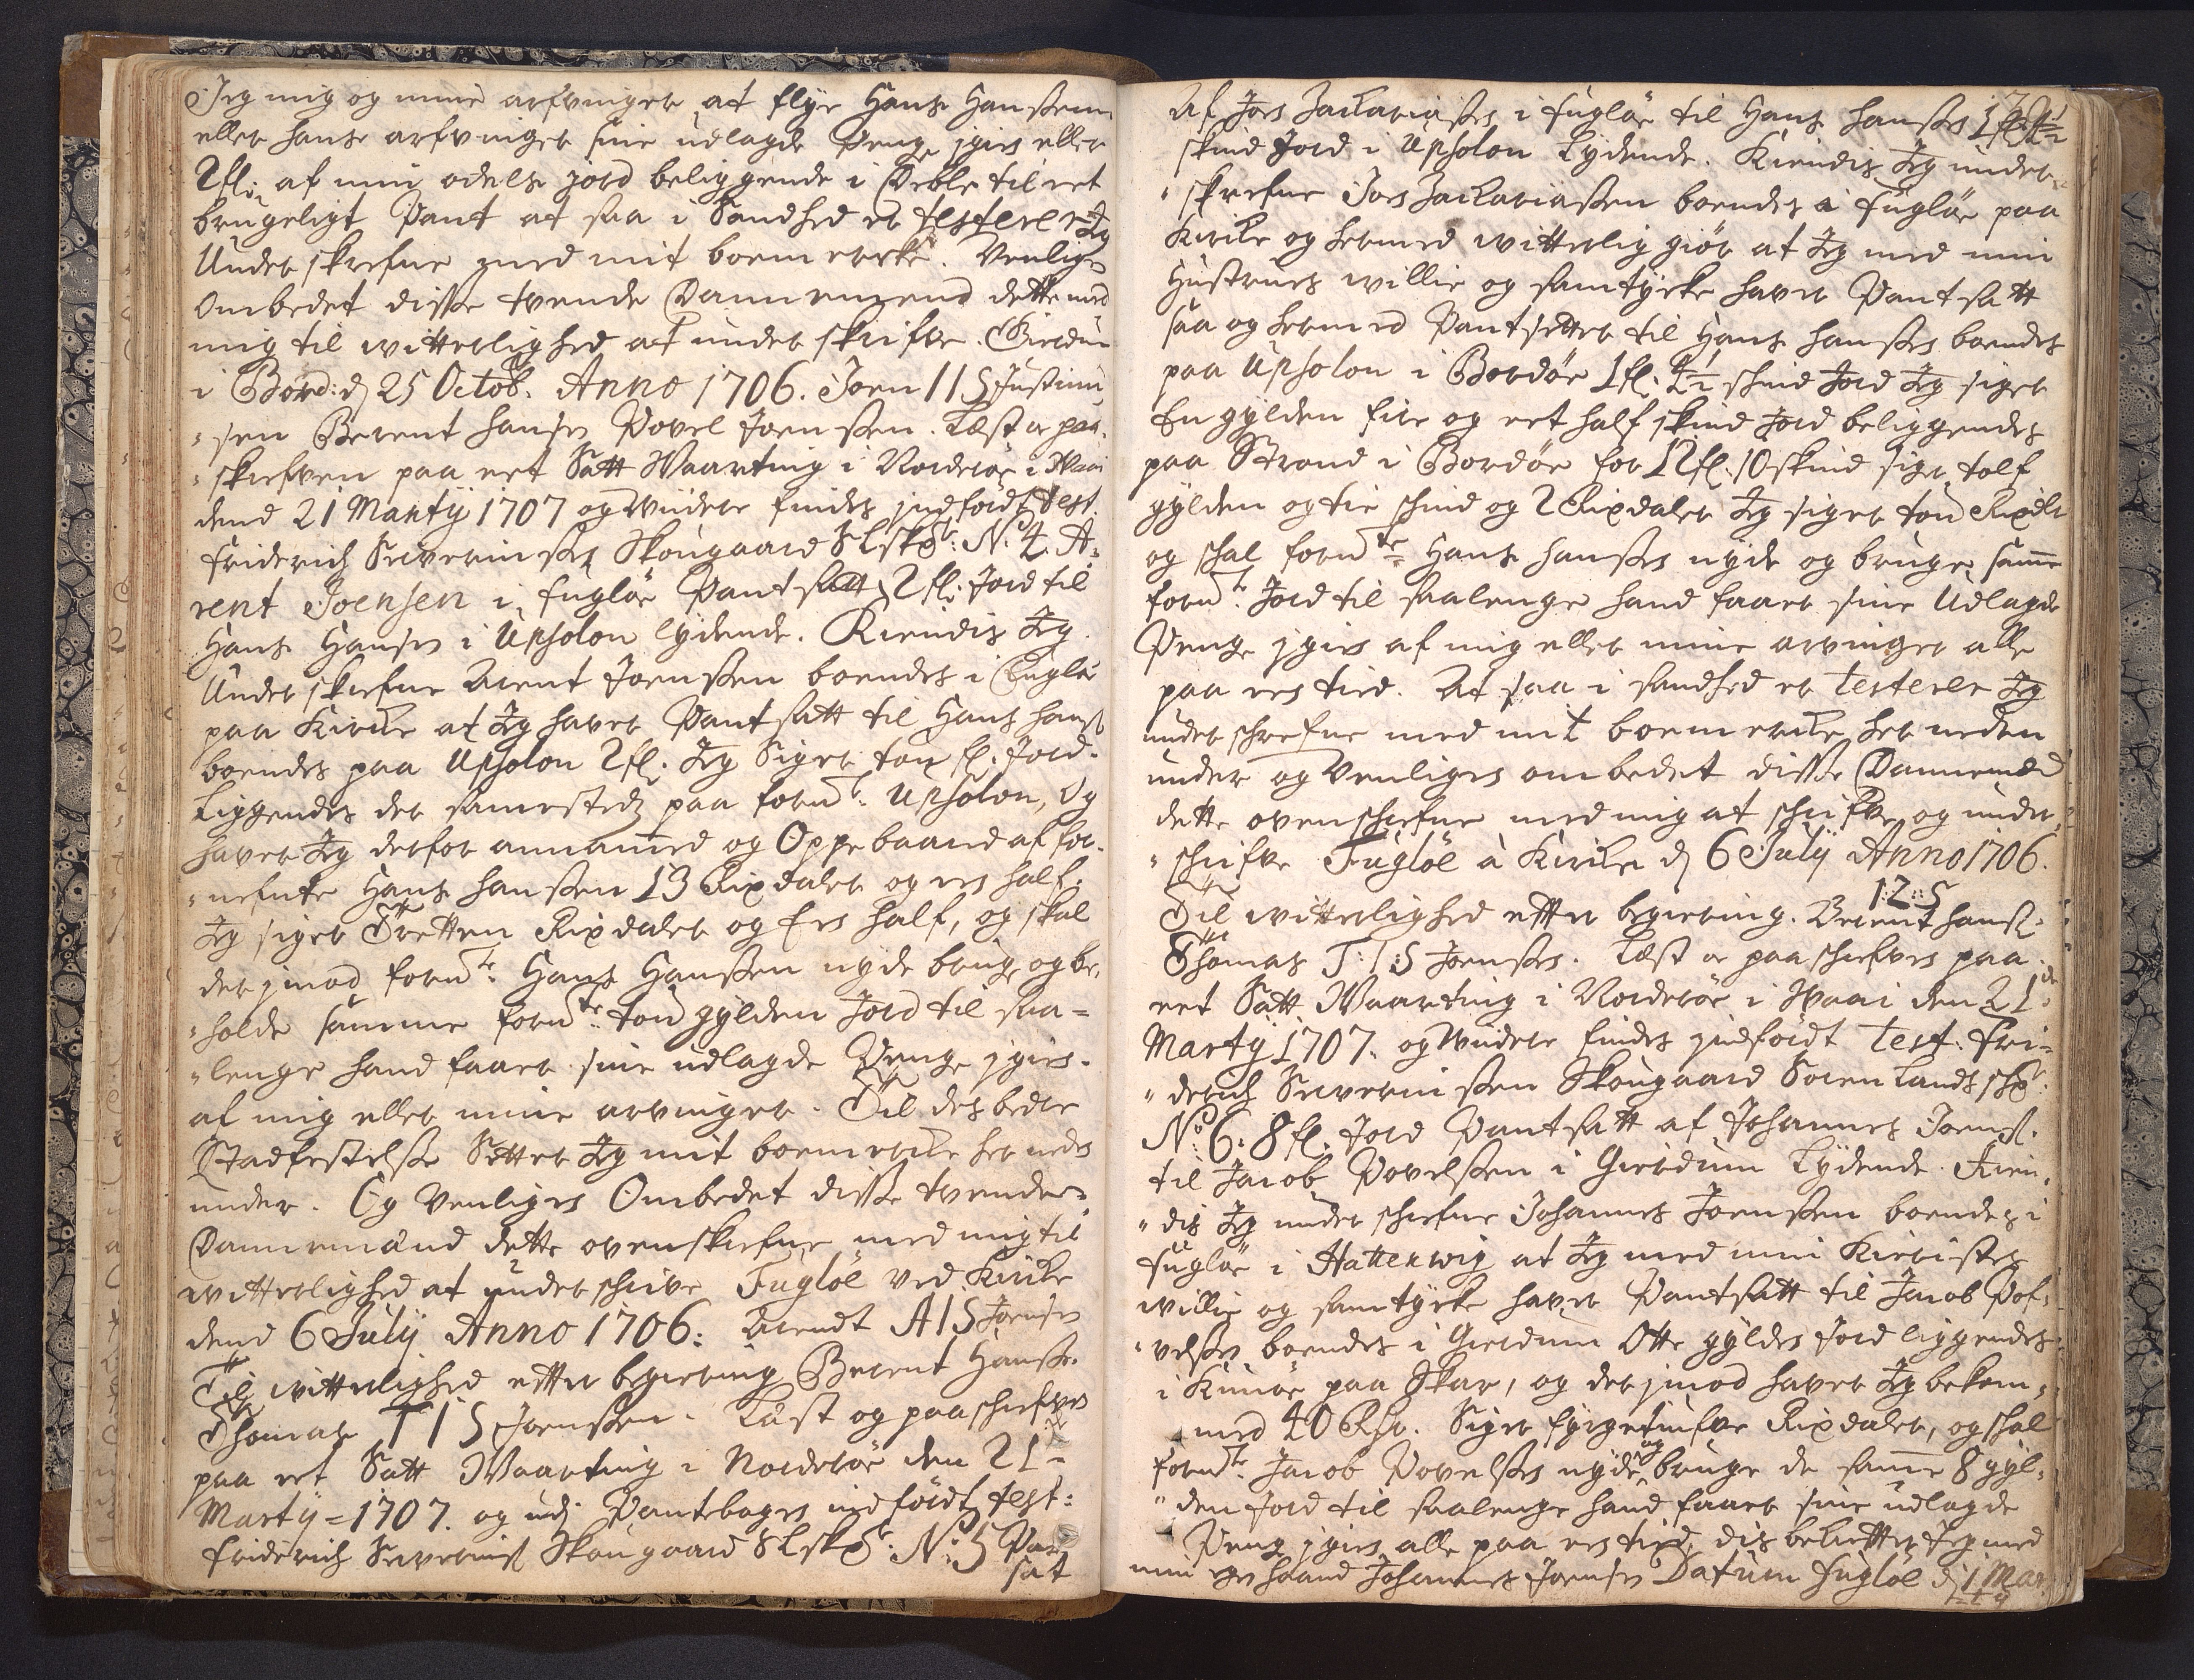 Jeg mig og mine arfvinger at flye Hans Hanssen
eller hans arfvinger sine udlagde Penge igien eller
2 fl: af min odels jord beliggende i Deble til et
brugeligt Pant at saa i Sandhed er testerer Jeg
Underskrefne med mit boemercke. Venligen
Ombedet disse tvende Dannemend dette med
mig til witterlighed at underskrifve. Gierdum
i Bord: d 25 Octob. Anno 1706. Joen IIS Justinu
"sen Berent Hansen Povel Joenssen. Læst oc paa
"skrefven paa ret Satt Waarting i Norderöe i Waai
dend 21 Martij 1707 og Widere findes indfördt test.
Friderich Severinssen Skougaard SLskr: No. 4. A-
rent Joensen i Fuglöe Pantsatt 2 fl: Jord til
Hans Hansen i Upsolon lydende. Kiendis Jeg
Underskrefne Arent Joenssen boendes i Fuglöe
paa Kircke at Jeg haver Pantsatt til Hans Hanss
boendes paa Upsolon 2 fl. Jeg Siger too fl. Jord.
Liggendes der sammesteds paa fornte: Upsolon, Og
haver Jeg derfor annammed og Oppebaared af for-
"nefnte Hans Hanssen 13 Rixdaler og en half.
Jeg siger Tretten Rixdaler og Een half, og skal
der jmod fornte: Hans Hanssen nyde bruge og be-
"holde samme fornte: too gylden Jord til saa=
"lenge hand faaer sine udlagde Penge jgien.
af mig eller mine arvinger. Til des bedre
Stadfestelsse Setter Jeg mit boemercke her neden
under. Og Venligen Ombedet disse tvende
Dannemænd dette ovenskrefne med mig til
witterlighed at underschrive Fugløe ved Kircke
dend 6 Julij Anno 1706: Arendt AIS Joensen
Til witterlighed efter begiering Berent Hanss.
Thomas TIS Joenssen. Læst og paaschrefven
paa ret Satt Waarting i Norderöe den 21
Martij = 1707. og udj Pantebogen indfördt test:
Friderich Severinss Skougaard SLskr: No: 5 Pant
sat
Af Joen Zachariassen i Fuglöe til Hans Hanssen 1 fl. 4½
skind Jord i Upsolon Lydende. Kiendis Jeg under
"skrefne Joen Zachariassen boendes i Fuglöe paa
Kircke og hermed witterlig giör at Jeg med min
Hustrues willie og samtycke haver Pantsatt
saa og hermed Pantsetter til Hans Hanssen boendes
paa Upsolon i Bordöe 1 fl. 4½ schind Jord Jeg siger
En gylden fire og et half skind Jord beliggendes
paa Strand i Bordöe for 12 fl. 10 skind siger tolf
gylden og tie schind og 2 Rixdaler Jeg siger too Rixdlr
og schal fornte Hans Hanssen nyde og bruge samme
fornte: Jord til saalenge hand faaer sine Udlagde
Penge jgien af mig eller mine arvinger alle
paa een tied. At saa i sandhed er testerer Jeg
underschrefne med mit boemercke her neden
under og Venligen ombedet disse Dannemend
dette ovenschrefne med mig at schrifve og under
"schrifve Fugløe à Kircke d 6 Julij Anno 1706.
I:Z:S
Til witterlighed efter begiering. Berent Hanss.
Thomas T:I:S Joenssen. Læst oc paaschrefven paa
ret Satt Waarting i Norderöe i Waai den 21de
Martij 1707. og Widere findes jndfördt test. Fri-
"derich Severinssen Skougaard Soren Landtschr:
No: 6. 8 fl. Jord Pantsatt af Johannes Joenss.
til Jacob Povelssen i Gierdum Lydende. Kien-
"dis Jeg underschrefne Johannes Joenssen boendes i
Fuglöe i Hattenwig at Jeg med min Kieristes
willie og samtycke haver Pantsatt til Jacob Pof-
"velssen boendes i Gierdum Otte gylden Jord liggendes
i Kunöe paa Skar, og der jmod haver Jeg bekom-
"med 40 Rdr. Siger fyrgetiufve Rixdaler, og schal
fornte: Jacob Povelssen nyde og bruge de samme 8 gyl-
"den Jord til saalenge hand faaer sine udlagde
Penge jgien alle paa een tied, dis bekrefter Jeg med
min egen haand Johannes Joensen Datum Fugløe d 1 Mar
=tij